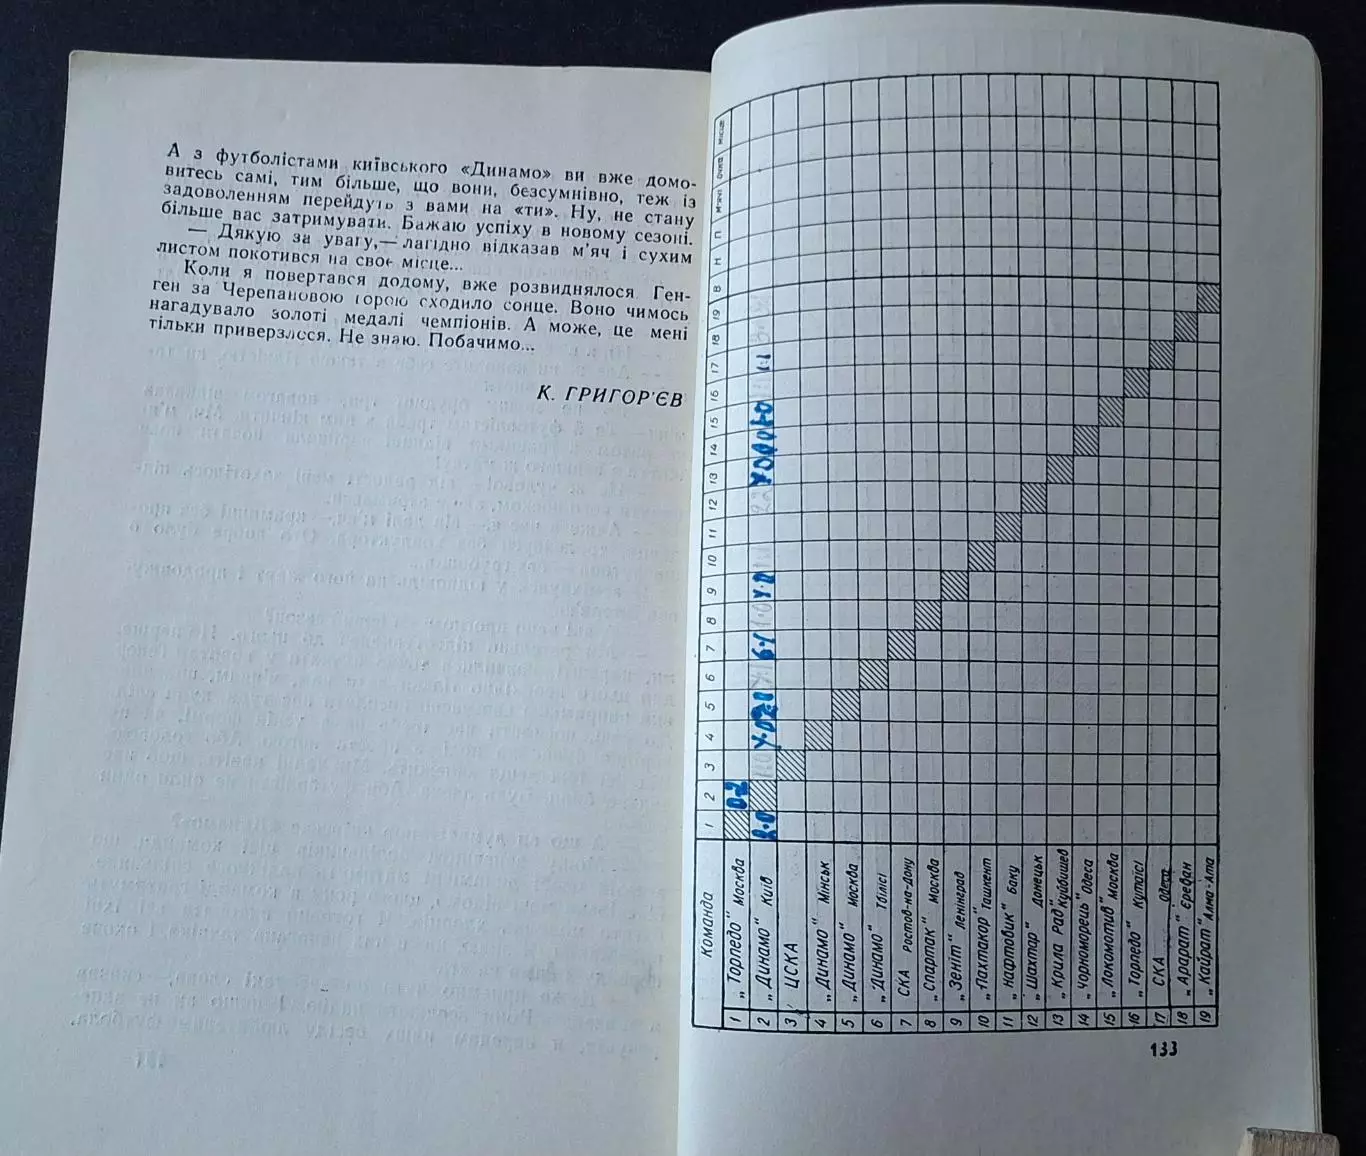 А з футболістами київського «Динамо» ви вже домо-
витесь самі, тим більше, що вони, безсумнівно, теж із
задоволенням перейдуть з вами на «ти». Ну, не стану
більше вас затримувати. Бажаю успіху в новому сезоні.
— Дякую за увагу,— лагідно відказав м'яч і сухим
листом покотився на своє місце...
Коли я повертався додому, вже розвиднялося. Ген-
ген за Черепановою горою сходило сонце. Воно чимось
нагадувало золоті медалі чемпіонів. А може, це мені
тільки приверзлося. Не знаю. Побачимо...
К. ГРИГОР'ЄВ
Команда 1 2 3 4 5 6 7 8 9 10 11 12 13 14 15 16 17 18 19 В Н П М'ячі Очка Місце
1 „Торпедо" Москва 0-2
2 „Динамо" Київ 2-0
3 ЦСКА
4 „Динамо" Мінськ
5 „Динамо" Москва
6 „Динамо" Тбілісі
7 СКА Ростов-на-Дону
8 „Спартак" Москва
9 „Зеніт" Ленінград
10 „Пахтакор" Ташкент
11 „Нафтовик" Баку
12 „Шахтар" Донецьк
13 „Крила Рад" Куйбишев
14 „Чорноморець" Одеса
15 „Локомотив" Москва
16 „Торпедо" Кутаїсі
17 СКА Одеса
18 „Арарат" Єреван
19 „Кайрат" Алма-Ата
133